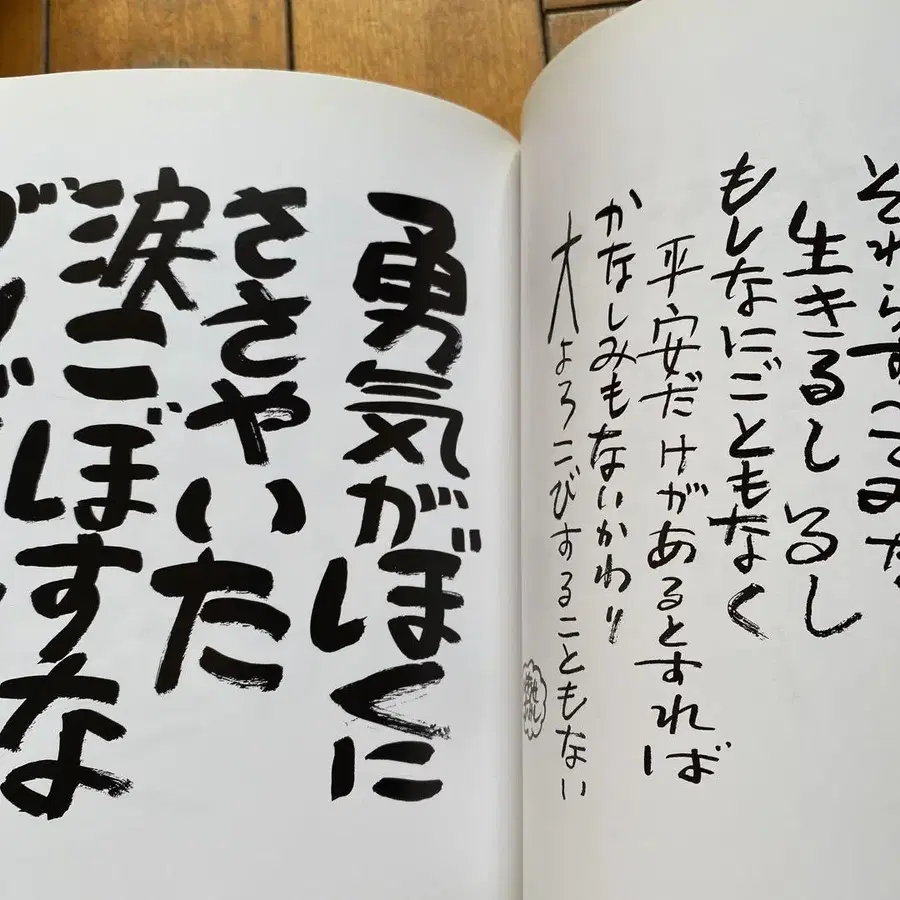 それらすべて
生きるしるし
もしなにごともなく
平安だけがあるとすれば
かなしみもないかわり
大よろこびすることもない
勇気がぼくに
ささやいた
涙こぼすな